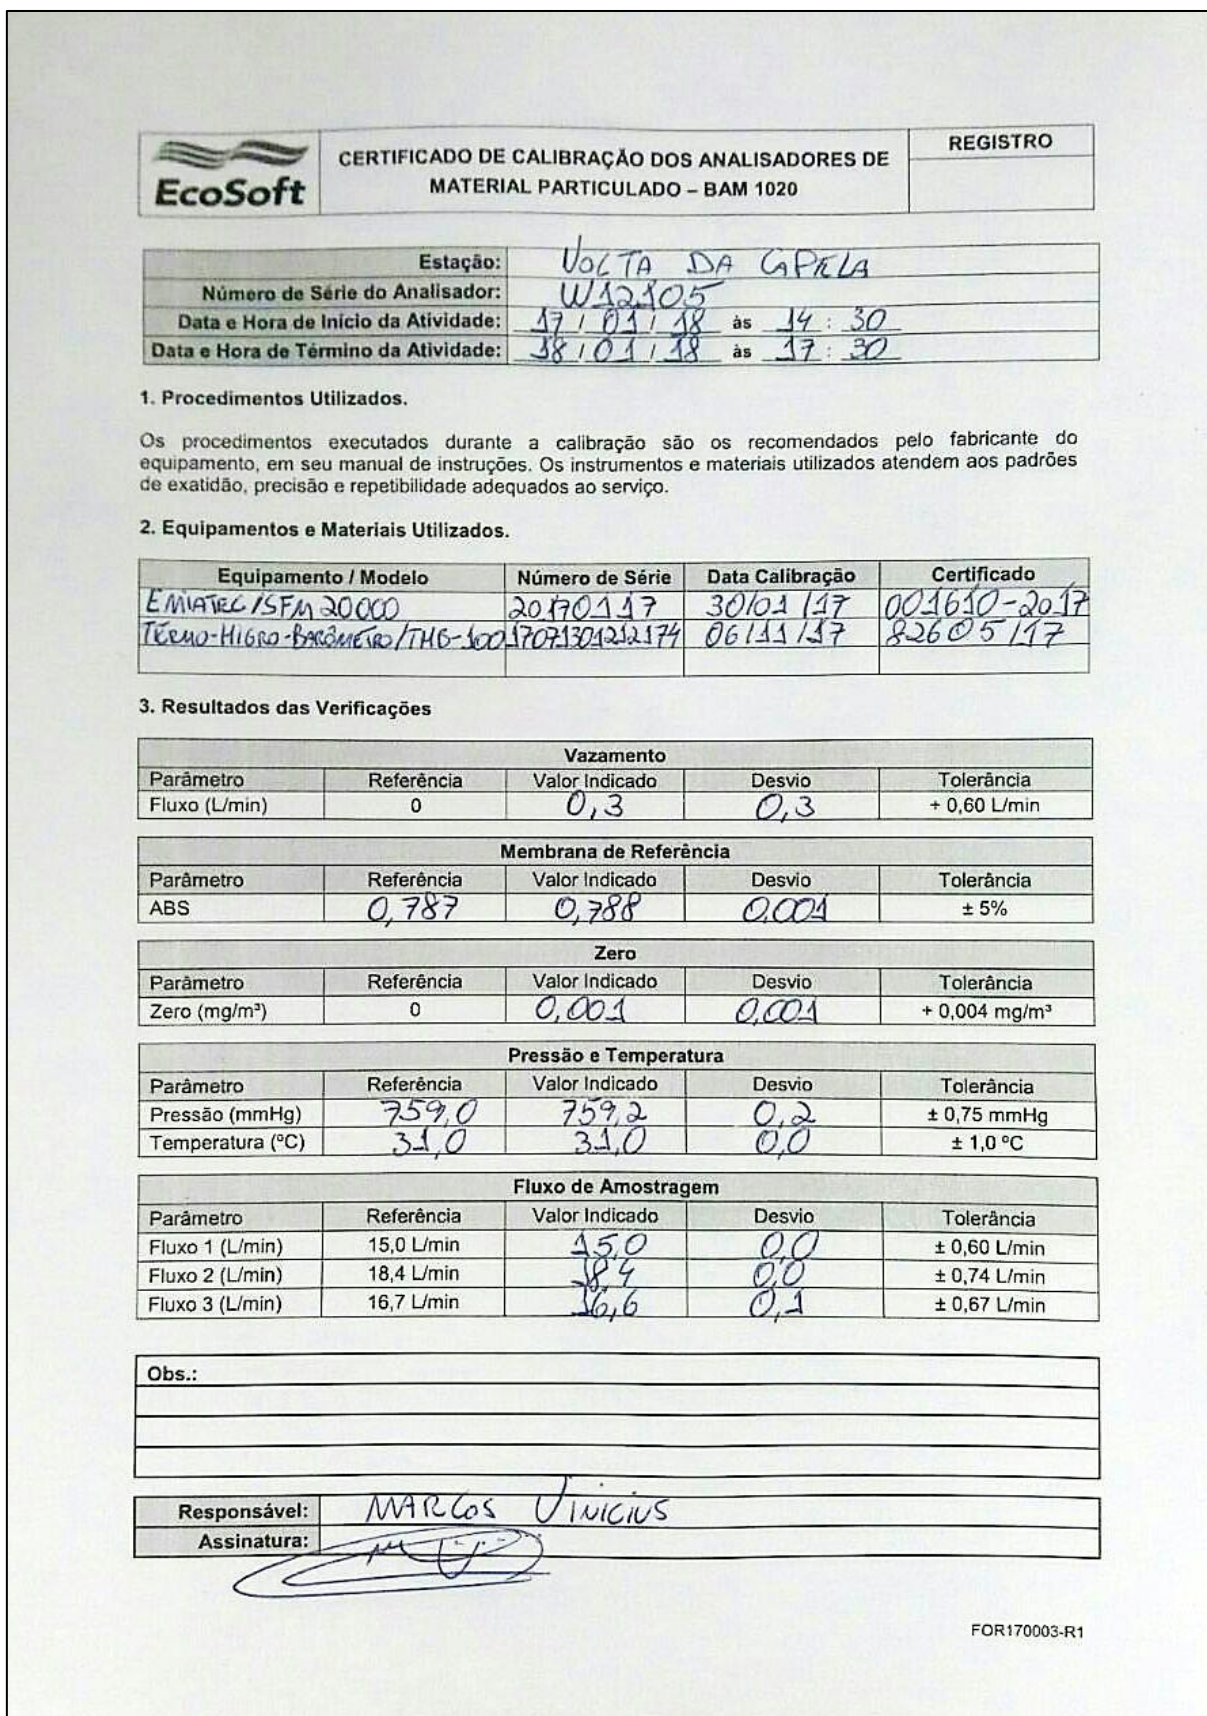 EcoSoft
CERTIFICADO DE CALIBRAÇÃO DOS ANALISADORES DE
MATERIAL PARTICULADO – BAM 1020
REGISTRO
Estação: VOLTA DA CAPELA
Número de Série do Analisador: W12105
Data e Hora de Início da Atividade: 17 / 01 / 18 às 14 : 30
Data e Hora de Término da Atividade: 18 / 01 / 18 às 17 : 30
1. Procedimentos Utilizados.
Os procedimentos executados durante a calibração são os recomendados pelo fabricante do
equipamento, em seu manual de instruções. Os instrumentos e materiais utilizados atendem aos padrões
de exatidão, precisão e repetibilidade adequados ao serviço.
2. Equipamentos e Materiais Utilizados.
Equipamento / Modelo Número de Série Data Calibração Certificado
EMIATEC/SFM 20000 20170117 30/01/17 001610-2017
TERMO-HIGRO-BARÔMETRO/THB-100 17071301212174 06/11/17 82605/17
3. Resultados das Verificações
Vazamento
Parâmetro Referência Valor Indicado Desvio Tolerância
Fluxo (L/min) 0 0,3 0,3 + 0,60 L/min
Membrana de Referência
Parâmetro Referência Valor Indicado Desvio Tolerância
ABS 0,787 0,788 0,001 ± 5%
Zero
Parâmetro Referência Valor Indicado Desvio Tolerância
Zero (mg/m³) 0 0,001 0,001 + 0,004 mg/m³
Pressão e Temperatura
Parâmetro Referência Valor Indicado Desvio Tolerância
Pressão (mmHg) 759,0 759,2 0,2 ± 0,75 mmHg
Temperatura (ºC) 31,0 31,0 0,0 ± 1,0 ºC
Fluxo de Amostragem
Parâmetro Referência Valor Indicado Desvio Tolerância
Fluxo 1 (L/min) 15,0 L/min 15,0 0,0 ± 0,60 L/min
Fluxo 2 (L/min) 18,4 L/min 18,4 0,0 ± 0,74 L/min
Fluxo 3 (L/min) 16,7 L/min 16,6 0,1 ± 0,67 L/min
Obs.:
Responsável: MARCOS VINICIUS
Assinatura:
FOR170003-R1